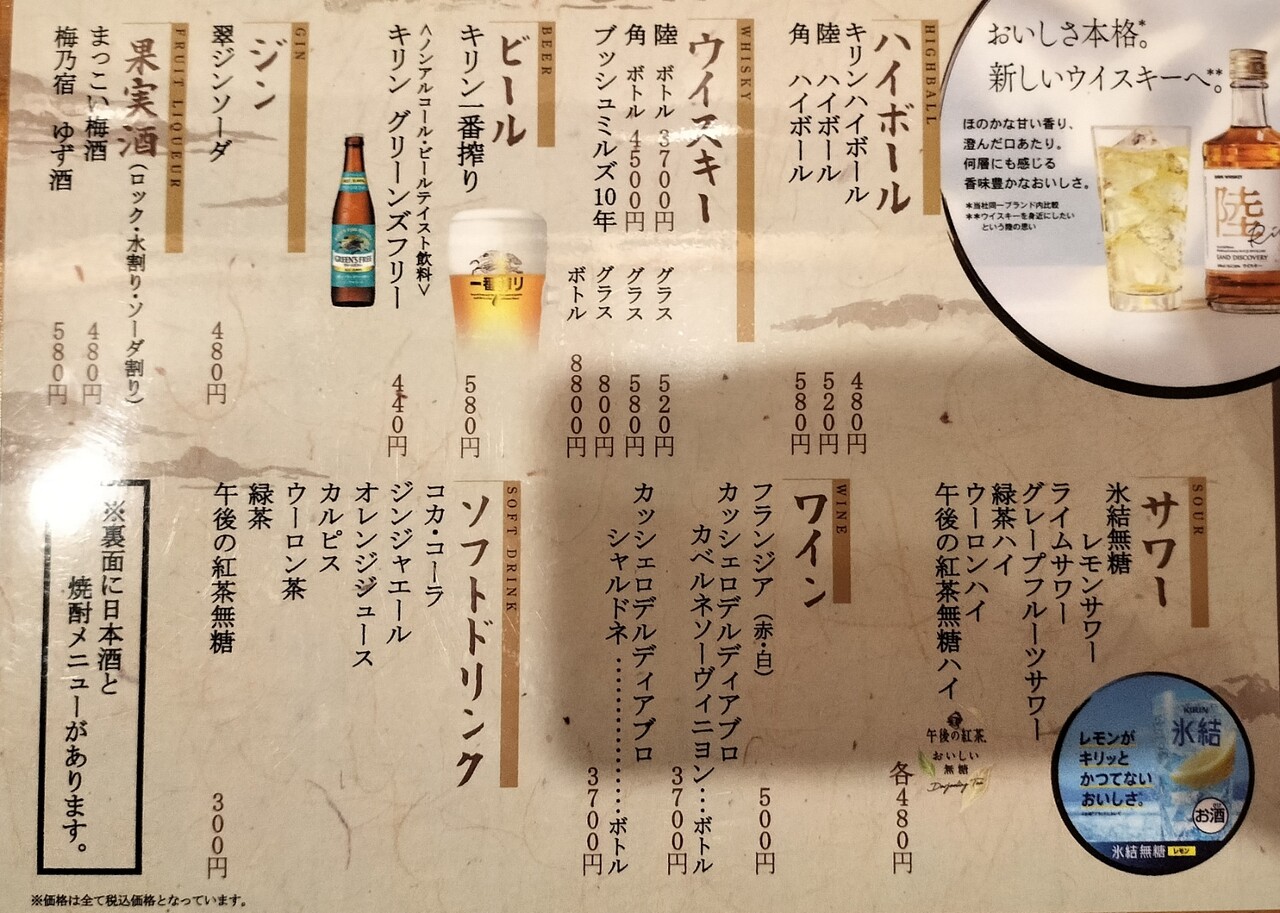 おいしさ本格。*
新しいウイスキーへ。**
ほのかな甘い香り、
澄んだ口あたり。
何層にも感じる
香味豊かなおいしさ。
*当社同一ブランド内比較
**ウイスキーを身近にしたい
という陸の思い
陸
LAND DISCOVERY
HIGHBALL
ハイボール
キリンハイボール 480円
陸 ハイボール 520円
角 ハイボール 580円
WHISKY
ウイスキー
陸 ボトル 3700円 グラス 520円
角 ボトル 4500円 グラス 580円
ブッシュミルズ10年 グラス 800円
ボトル 8800円
BEER
ビール
キリン一番搾り 580円
<ノンアルコール・ビールテイスト飲料>
キリン グリーンズフリー 440円
GREEN'S FREE
GIN
ジン
翠ジンソーダ 480円
FRUIT LIQUEUR
果実酒(ロック・水割り・ソーダ割り)
まっこい梅酒 480円
梅乃宿 ゆず酒 580円
SOUR
サワー
氷結無糖
レモンサワー
ライムサワー
グレープフルーツサワー
緑茶ハイ
ウーロンハイ
午後の紅茶無糖ハイ
各480円
午後の紅茶
おいしい
無糖
Darjeeling Tea
KIRIN
氷結
レモンが
キリッと
かつてない
おいしさ。
お酒
氷結無糖 レモン
WINE
ワイン
フランジア(赤・白) 500円
カッシェロデルディアブロ
カベルネソーヴィニヨン…ボトル 3700円
カッシェロデルディアブロ
シャルドネ……………ボトル 3700円
SOFT DRINK
ソフトドリンク
コカ・コーラ
ジンジャエール
オレンジジュース
カルピス
ウーロン茶
緑茶
午後の紅茶無糖
300円
※裏面に日本酒と
焼酎メニューがあります。
※価格は全て税込価格となっています。